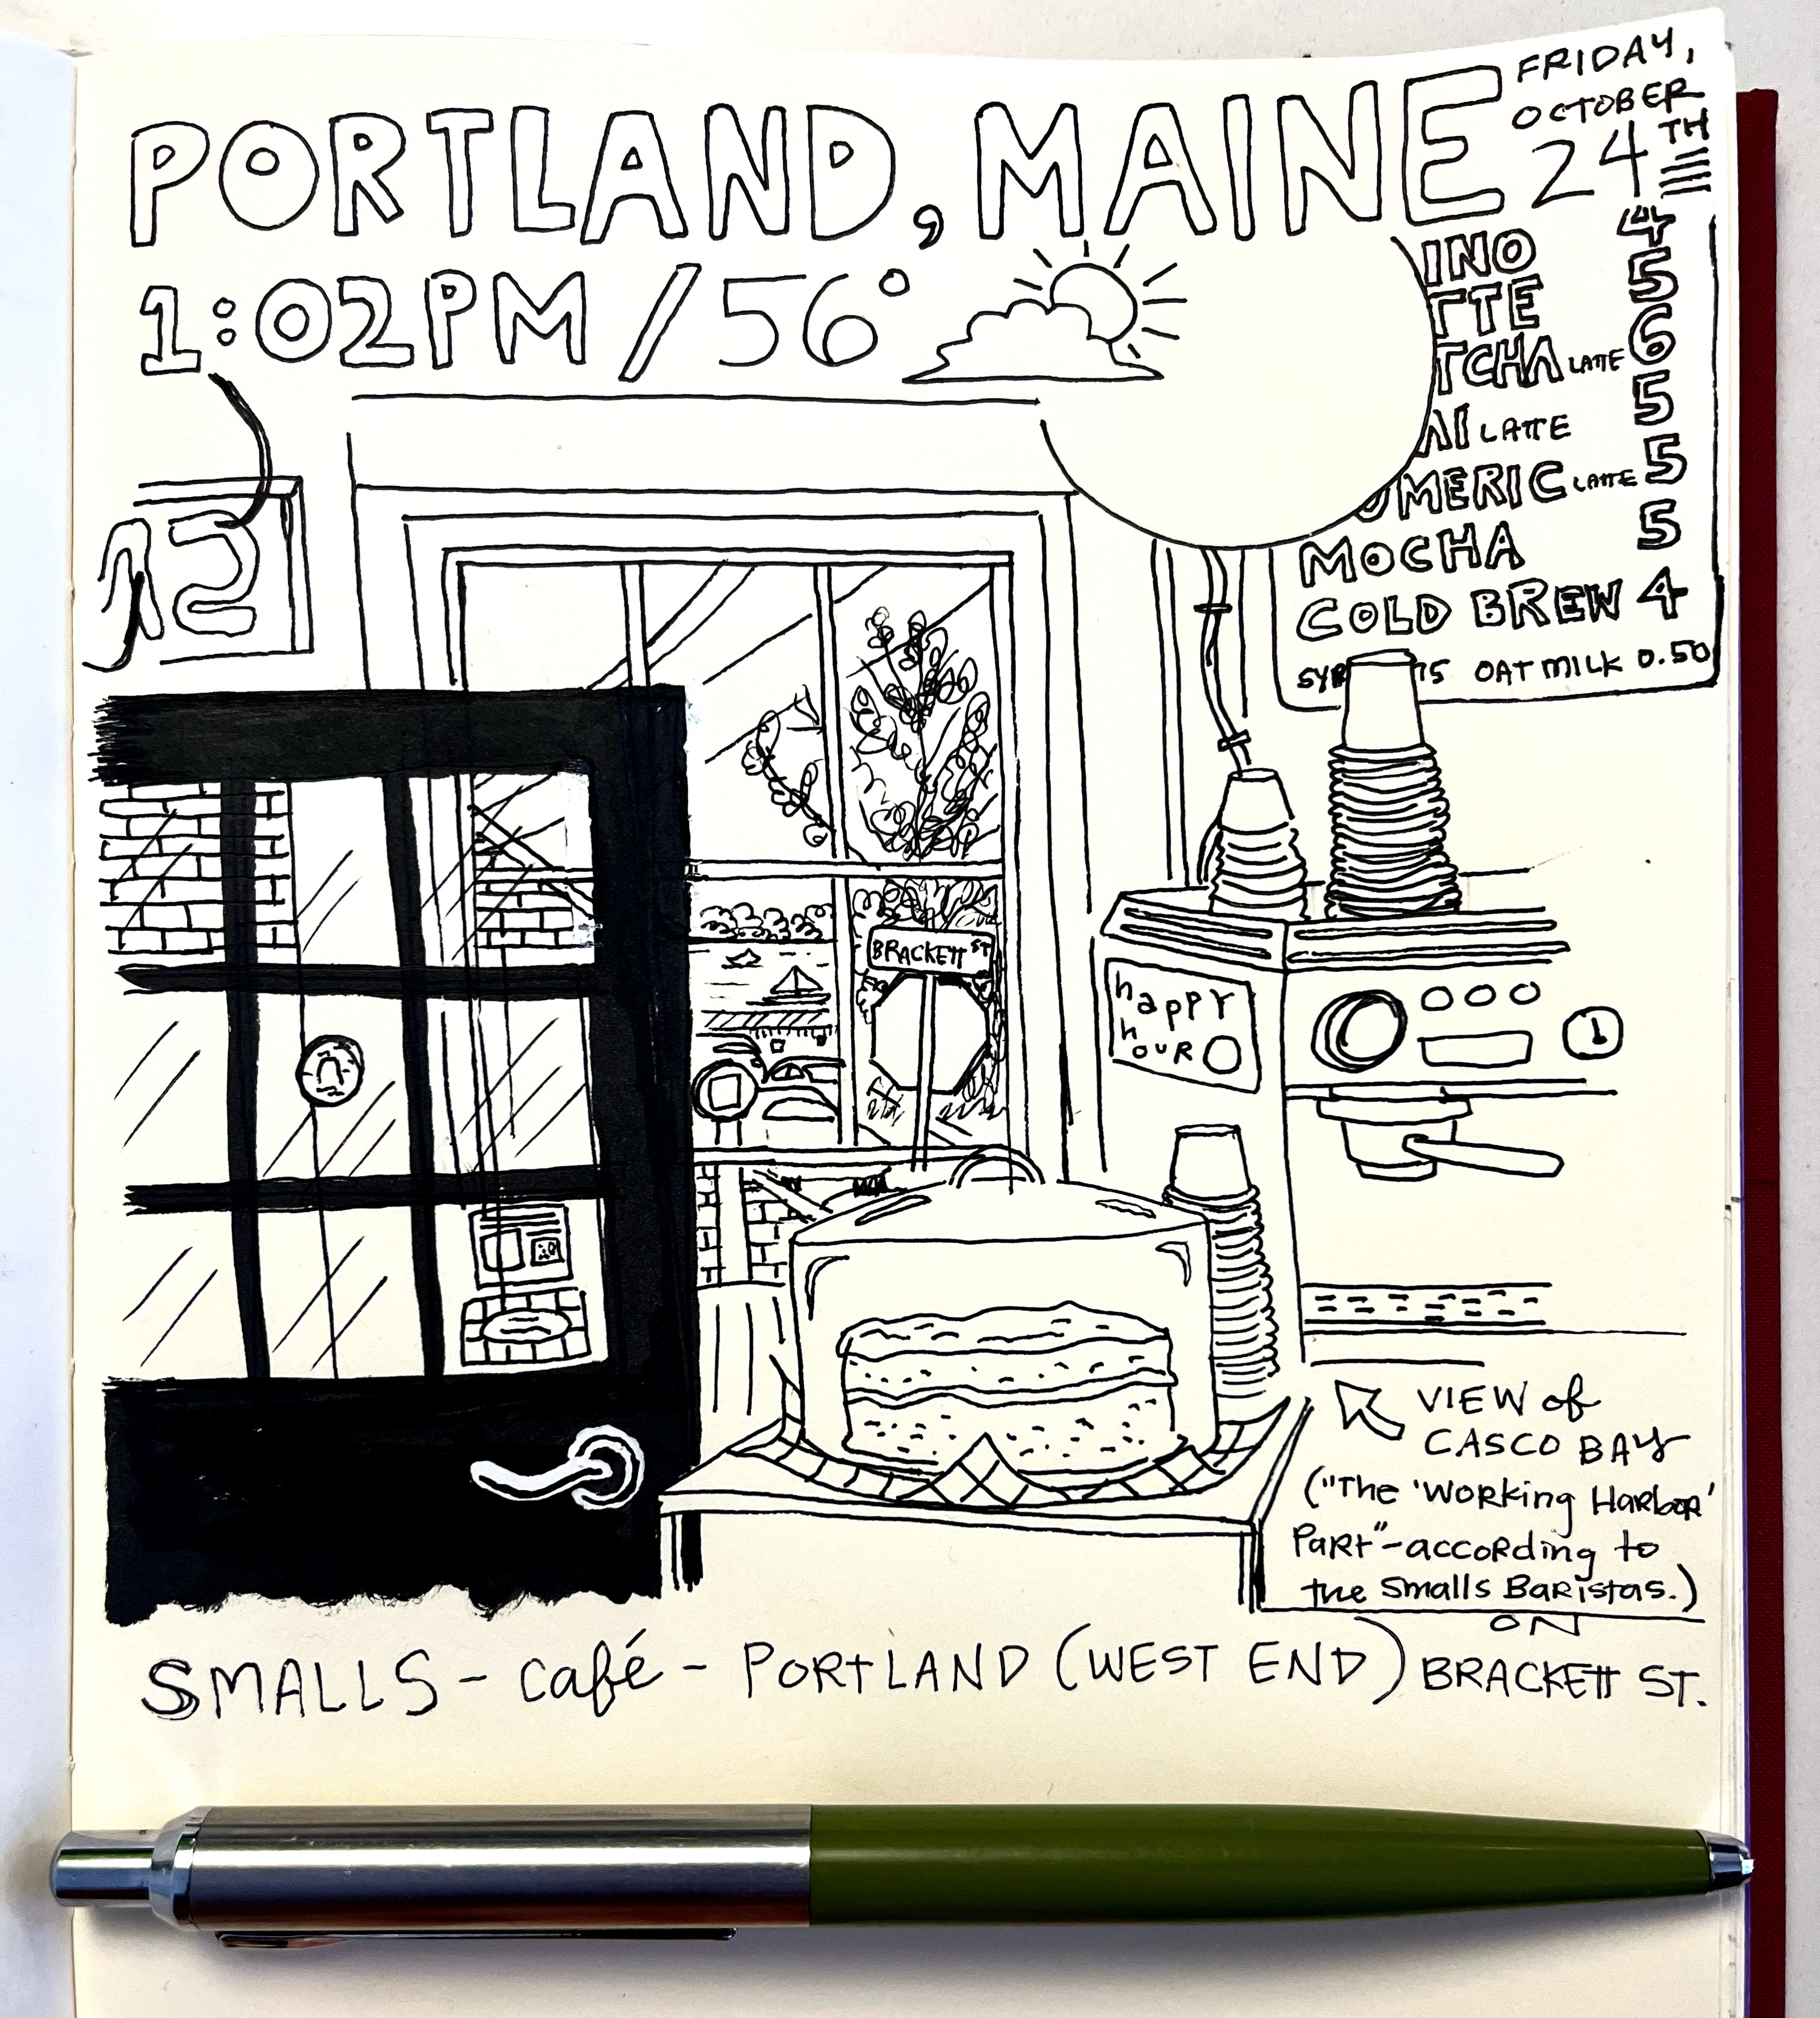 PORTLAND, MAINE
FRIDAY,
OCTOBER
24TH
1:02PM / 56°
4
INO 5
TTE 6
TCHA LATTE 5
AI LATTE 5
UMERIC LATTE 5
MOCHA
COLD BREW 4
SYR 75 OAT MILK 0.50
12
BRACKETT ST
happy
hour
VIEW of
CASCO BAY
("The 'Working Harbor'
Part" - according to
the Smalls Baristas.)
SMALLS - café - PORTLAND (WEST END) ON BRACKETT ST.